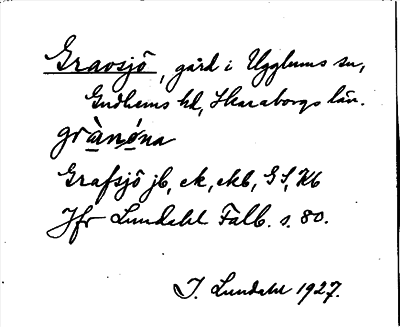 Gravsjö, gård i Ugglums sn,
Gudhems hd, Skaraborgs län.
grànóna
Grafsjö jb, ek, ekb, GS, Kb
Jfr Lundahl Falb. s. 80.
I. Lundahl 1927.